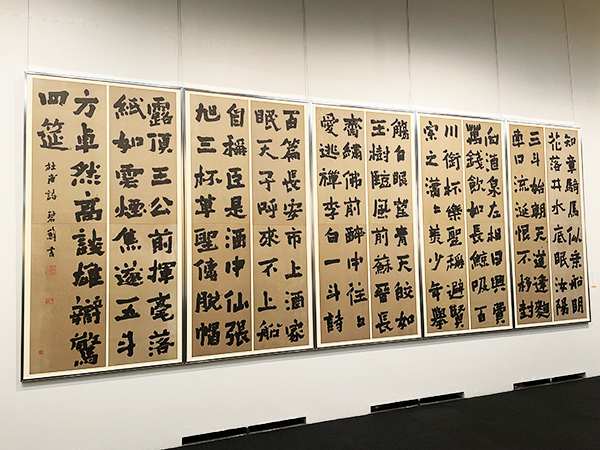 知章騎馬似乗船眼
花落井水底眠汝陽
三斗始朝天道逢麹
車口流涎恨不移封
向酒泉左相日興費
萬錢飲如長鯨吸百
川銜杯樂聖稱避賢
宗之瀟洒美少年擧
觴白眼望青天皎如
玉樹臨風前蘇晉長
齋繡佛前醉中往々
愛逃禪李白一斗詩
百篇長安市上酒家
眠天子呼來不上船
自稱臣是酒中仙張
旭三杯草聖傳脱帽
露頂王公前揮毫落
紙如雲煙焦遂五斗
方卓然高談雄辯驚
四筵
杜甫詩 書